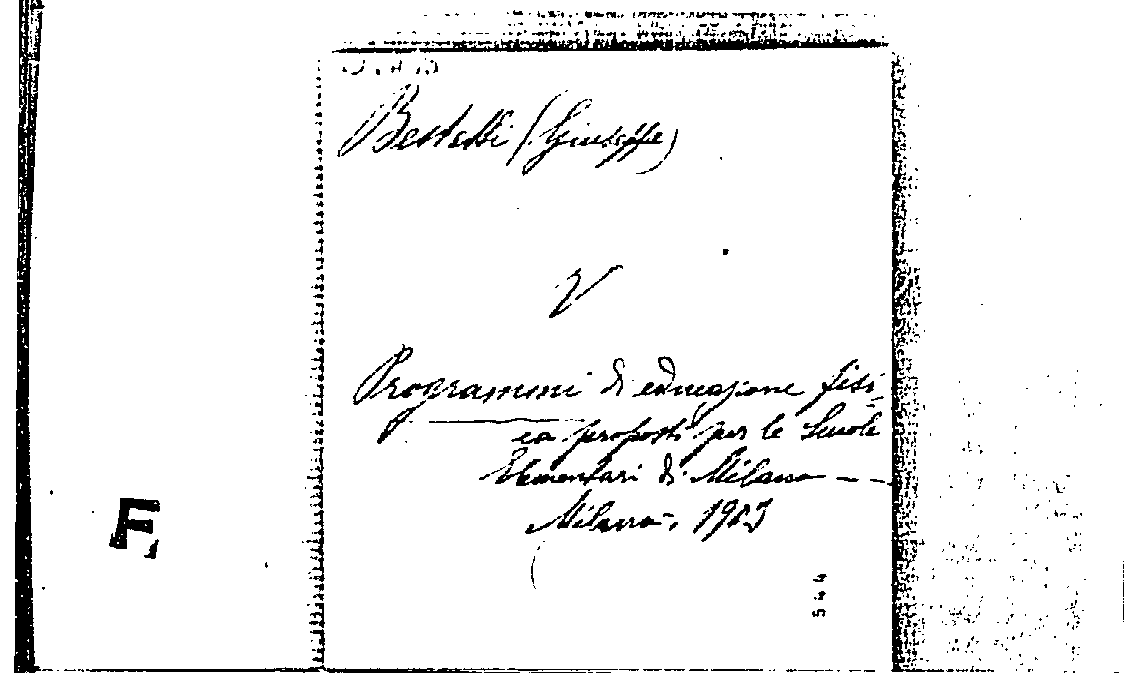 Bestetti (Giuseppe)
V
Programmi di educazione fisi-
ca proposti per le Scuole
Elementari di Milano - -
Milano -, 1923
544
F.